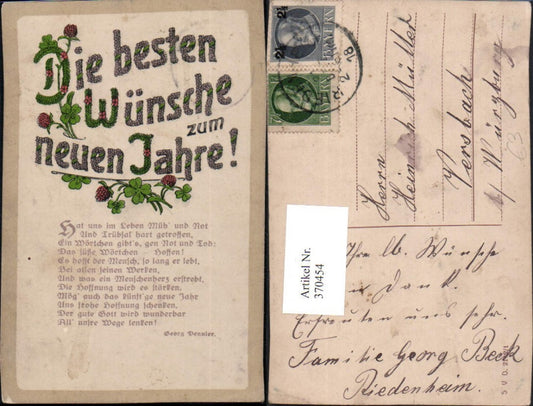 Die besten
Wünsche
zum
neuen Jahre!
Hat uns im Leben Müh' und Not
Und Trübsal hart getroffen,
Ein Wörtchen gibt's, gen Not und Tod:
Das süße Wörtchen — Hoffen!
Es hofft der Mensch, so lang er lebt,
Bei allen seinen Werken,
Und was ein Menschenherz erstrebt,
Die Hoffnung wird es stärken.
Mög' auch das künft'ge neue Jahr
Uns frohe Hoffnung schenken,
Der gute Gott wird wunderbar
All' unsre Wege lenken!
Georg
BAYERN
BAYERN
Artikel Nr.
370454
Herrn
Heinrich Müller
Versbach
b/ Würzburg
63
Ihre lb. Wünsche
in Dank.
Erfreuten uns sehr.
Familie Georg Beck
Riedenheim.